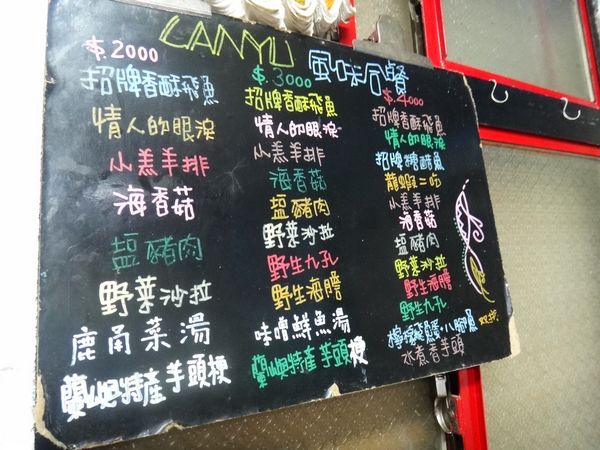 LANYU 風味合餐
$.2000
招牌香酥飛魚
情人的眼淚
小羔羊排
海香菇
塩豬肉
野菜沙拉
鹿角菜湯
蘭嶼特產芋頭梗
$.3000
招牌香酥飛魚
情人的眼淚
小羔羊排
海香菇
塩豬肉
野菜沙拉
野生九孔
野生海膽
味噌鮮魚湯
蘭嶼特產芋頭梗
$.4000
招牌香酥飛魚
情人的眼淚
招牌糖醋魚
龍蝦二吃
小羔羊排
海香菇
塩豬肉
野菜沙拉
野生海膽
野生九孔
檸檬飛魚鱘.八腳魚
水煮香芋頭